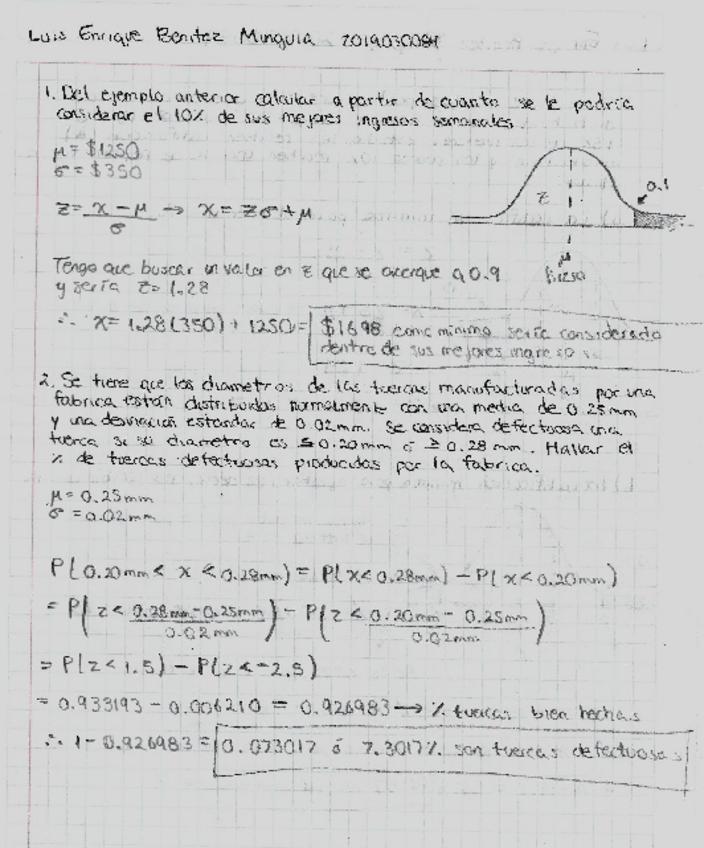 Luis Enrique Benitez Minguia 2019030084
1. Del ejemplo anterior calcular a partir de cuanto se le podria
considerar el 10% de sus mejores ingresos semanales.
μ = $1250
σ = $350
0.1
z
z = x - μ / σ → x = zσ + μ
μ
$1250
Tengo que buscar un valor en z que se acerque a 0.9
y sería z = 1.28
∴ x = 1.28(350) + 1250 = $1698 como minimo seria considerado
dentro de sus mejores ingresos.
2. Se tiene que los diametros de las tuercas manufacturadas por una
fabrica estan distribuidas normalmente con una media de 0.25mm
y una desviación estandar de 0.02mm. Se considera defectuosa una
tuerca si su diametro es ≤ 0.20mm ó ≥ 0.28 mm. Hallar el
% de tuercas defectuosas producidas por la fabrica.
μ = 0.25mm
σ = 0.02mm
P(0.20mm < x < 0.28mm) = P(x < 0.28mm) - P(x < 0.20mm)
= P(z < 0.28mm - 0.25mm / 0.02mm) - P(z < 0.20mm - 0.25mm / 0.02mm)
= P(z < 1.5) - P(z < -2.5)
= 0.933193 - 0.006210 = 0.926983 → % tuercas bien hechas
∴ 1 - 0.926983 = 0.073017 ó 7.3017% son tuercas defectuosas